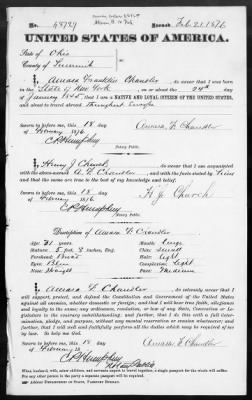 No. 48727 Issued, Feb. 21, 1876
UNITED STATES OF AMERICA.
State of Ohio
County of Summit
I, Amasa Franklin Chandler, do swear that I was born
in the State of New York on or about the 24th day
of January 1845; that I am a NATIVE AND LOYAL CITIZEN OF THE UNITED STATES,
and about to travel abroad throughout Europe
Sworn to before me, this 18 day
of February 1876
Amasa F. Chandler
C.P. Humphrey
Notary Public.
I, Henry J. Church, do swear that I am acquainted
with the above-named A. F. Chandler, and with the facts stated by him
and that the same are true to the best of my knowledge and belief.
Sworn to before me, this 18 day
of February 1876
H. J. Church
C.P. Humphrey
Notary Public.
Description of Amasa F. Chandler
Age: 31 years. Mouth: Large
Stature: 5 feet, inches, Eng. Chin: Small
Forehead: Broad Hair: Light
Eyes: Blue Complexion: Light
Nose: Straight Face: Medium
I, Amasa F. Chandler, do solemnly swear that I will
support, protect, and defend the Constitution and Government of the United States
against all enemies, whether domestic or foreign; and that I will bear true faith, allegiance
and loyalty to the same; any ordinance, resolution, or law of any State, Convention or Leg-
islature to the contrary notwithstanding; and, further, that I do this with a full deter-
mination, pledge, and purpose, without any mental reservation or evasion whatsoever; and,
further, that I will well and faithfully perform all the duties which may be required of me
by law. So help me God.
Sworn to before me, this 18 day
of February 18
Amasa F. Chandler
C.P. Humphrey
Notary Public